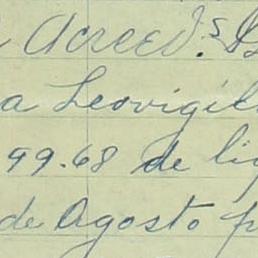 Acreed.s
a Leovigil
99.68 de lig
de Agosto p